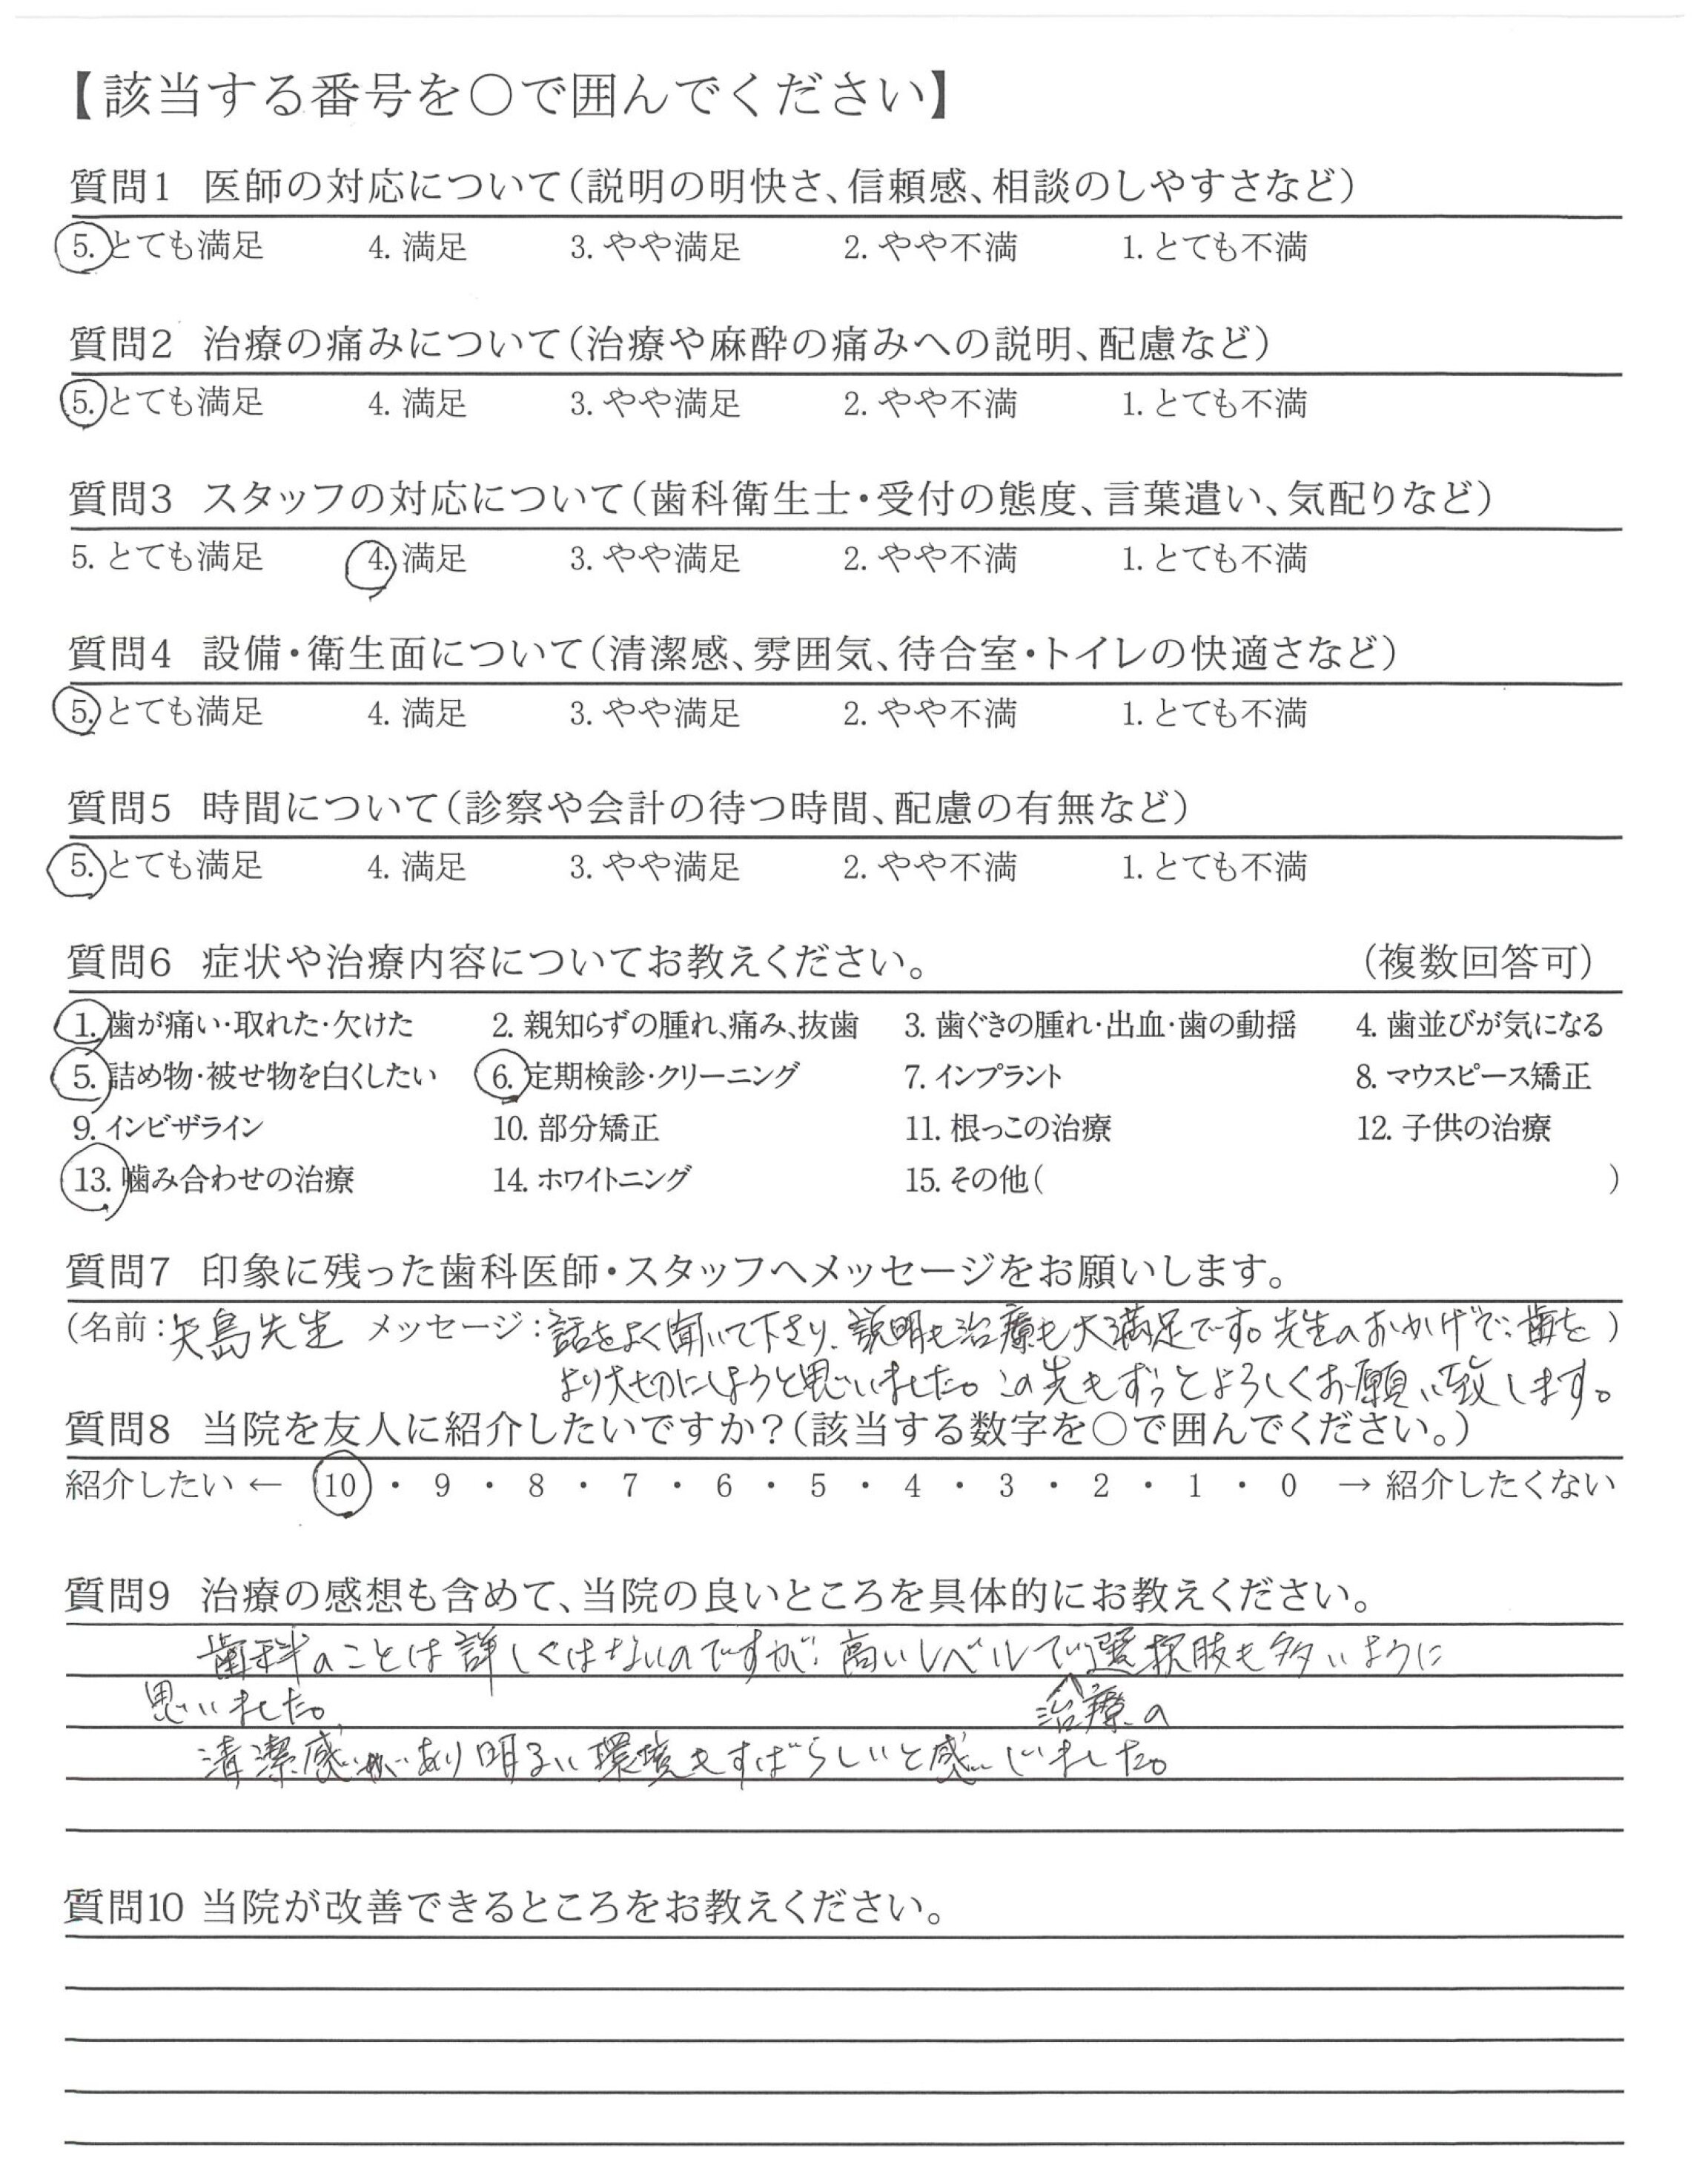 【該当する番号を○で囲んでください】
質問1 医師の対応について(説明の明快さ、信頼感、相談のしやすさなど)
5. とても満足 4. 満足 3. やや満足 2. やや不満 1. とても不満
質問2 治療の痛みについて(治療や麻酔の痛みへの説明、配慮など)
5. とても満足 4. 満足 3. やや満足 2. やや不満 1. とても不満
質問3 スタッフの対応について(歯科衛生士・受付の態度、言葉遣い、気配りなど)
5. とても満足 4. 満足 3. やや満足 2. やや不満 1. とても不満
質問4 設備・衛生面について(清潔感、雰囲気、待合室・トイレの快適さなど)
5. とても満足 4. 満足 3. やや満足 2. やや不満 1. とても不満
質問5 時間について(診察や会計の待つ時間、配慮の有無など)
5. とても満足 4. 満足 3. やや満足 2. やや不満 1. とても不満
質問6 症状や治療内容についてお教えください。 (複数回答可)
1. 歯が痛い・取れた・欠けた 2. 親知らずの腫れ、痛み、抜歯 3. 歯ぐきの腫れ・出血・歯の動揺 4. 歯並びが気になる
5. 詰め物・被せ物を白くしたい 6. 定期検診・クリーニング 7. インプラント 8. マウスピース矯正
9. インビザライン 10. 部分矯正 11. 根っこの治療 12. 子供の治療
13. 噛み合わせの治療 14. ホワイトニング 15. その他( )
質問7 印象に残った歯科医師・スタッフへメッセージをお願いします。
(名前:矢島先生 メッセージ:話をよく聞いて下さり、説明も治療も大満足です。先生のおかげで、歯を)
より大切にしようと思いました。この先もずっとよろしくお願い致します。
質問8 当院を友人に紹介したいですか?(該当する数字を○で囲んでください。)
紹介したい ← 10 ・ 9 ・ 8 ・ 7 ・ 6 ・ 5 ・ 4 ・ 3 ・ 2 ・ 1 ・ 0 → 紹介したくない
質問9 治療の感想も含めて、当院の良いところを具体的にお教えください。
歯科のことは詳しくはないのですが、高いレベルで選択肢も多いように
思いました。 治療の
清潔感があり明るい環境もすばらしいと感じました。
質問10 当院が改善できるところをお教えください。